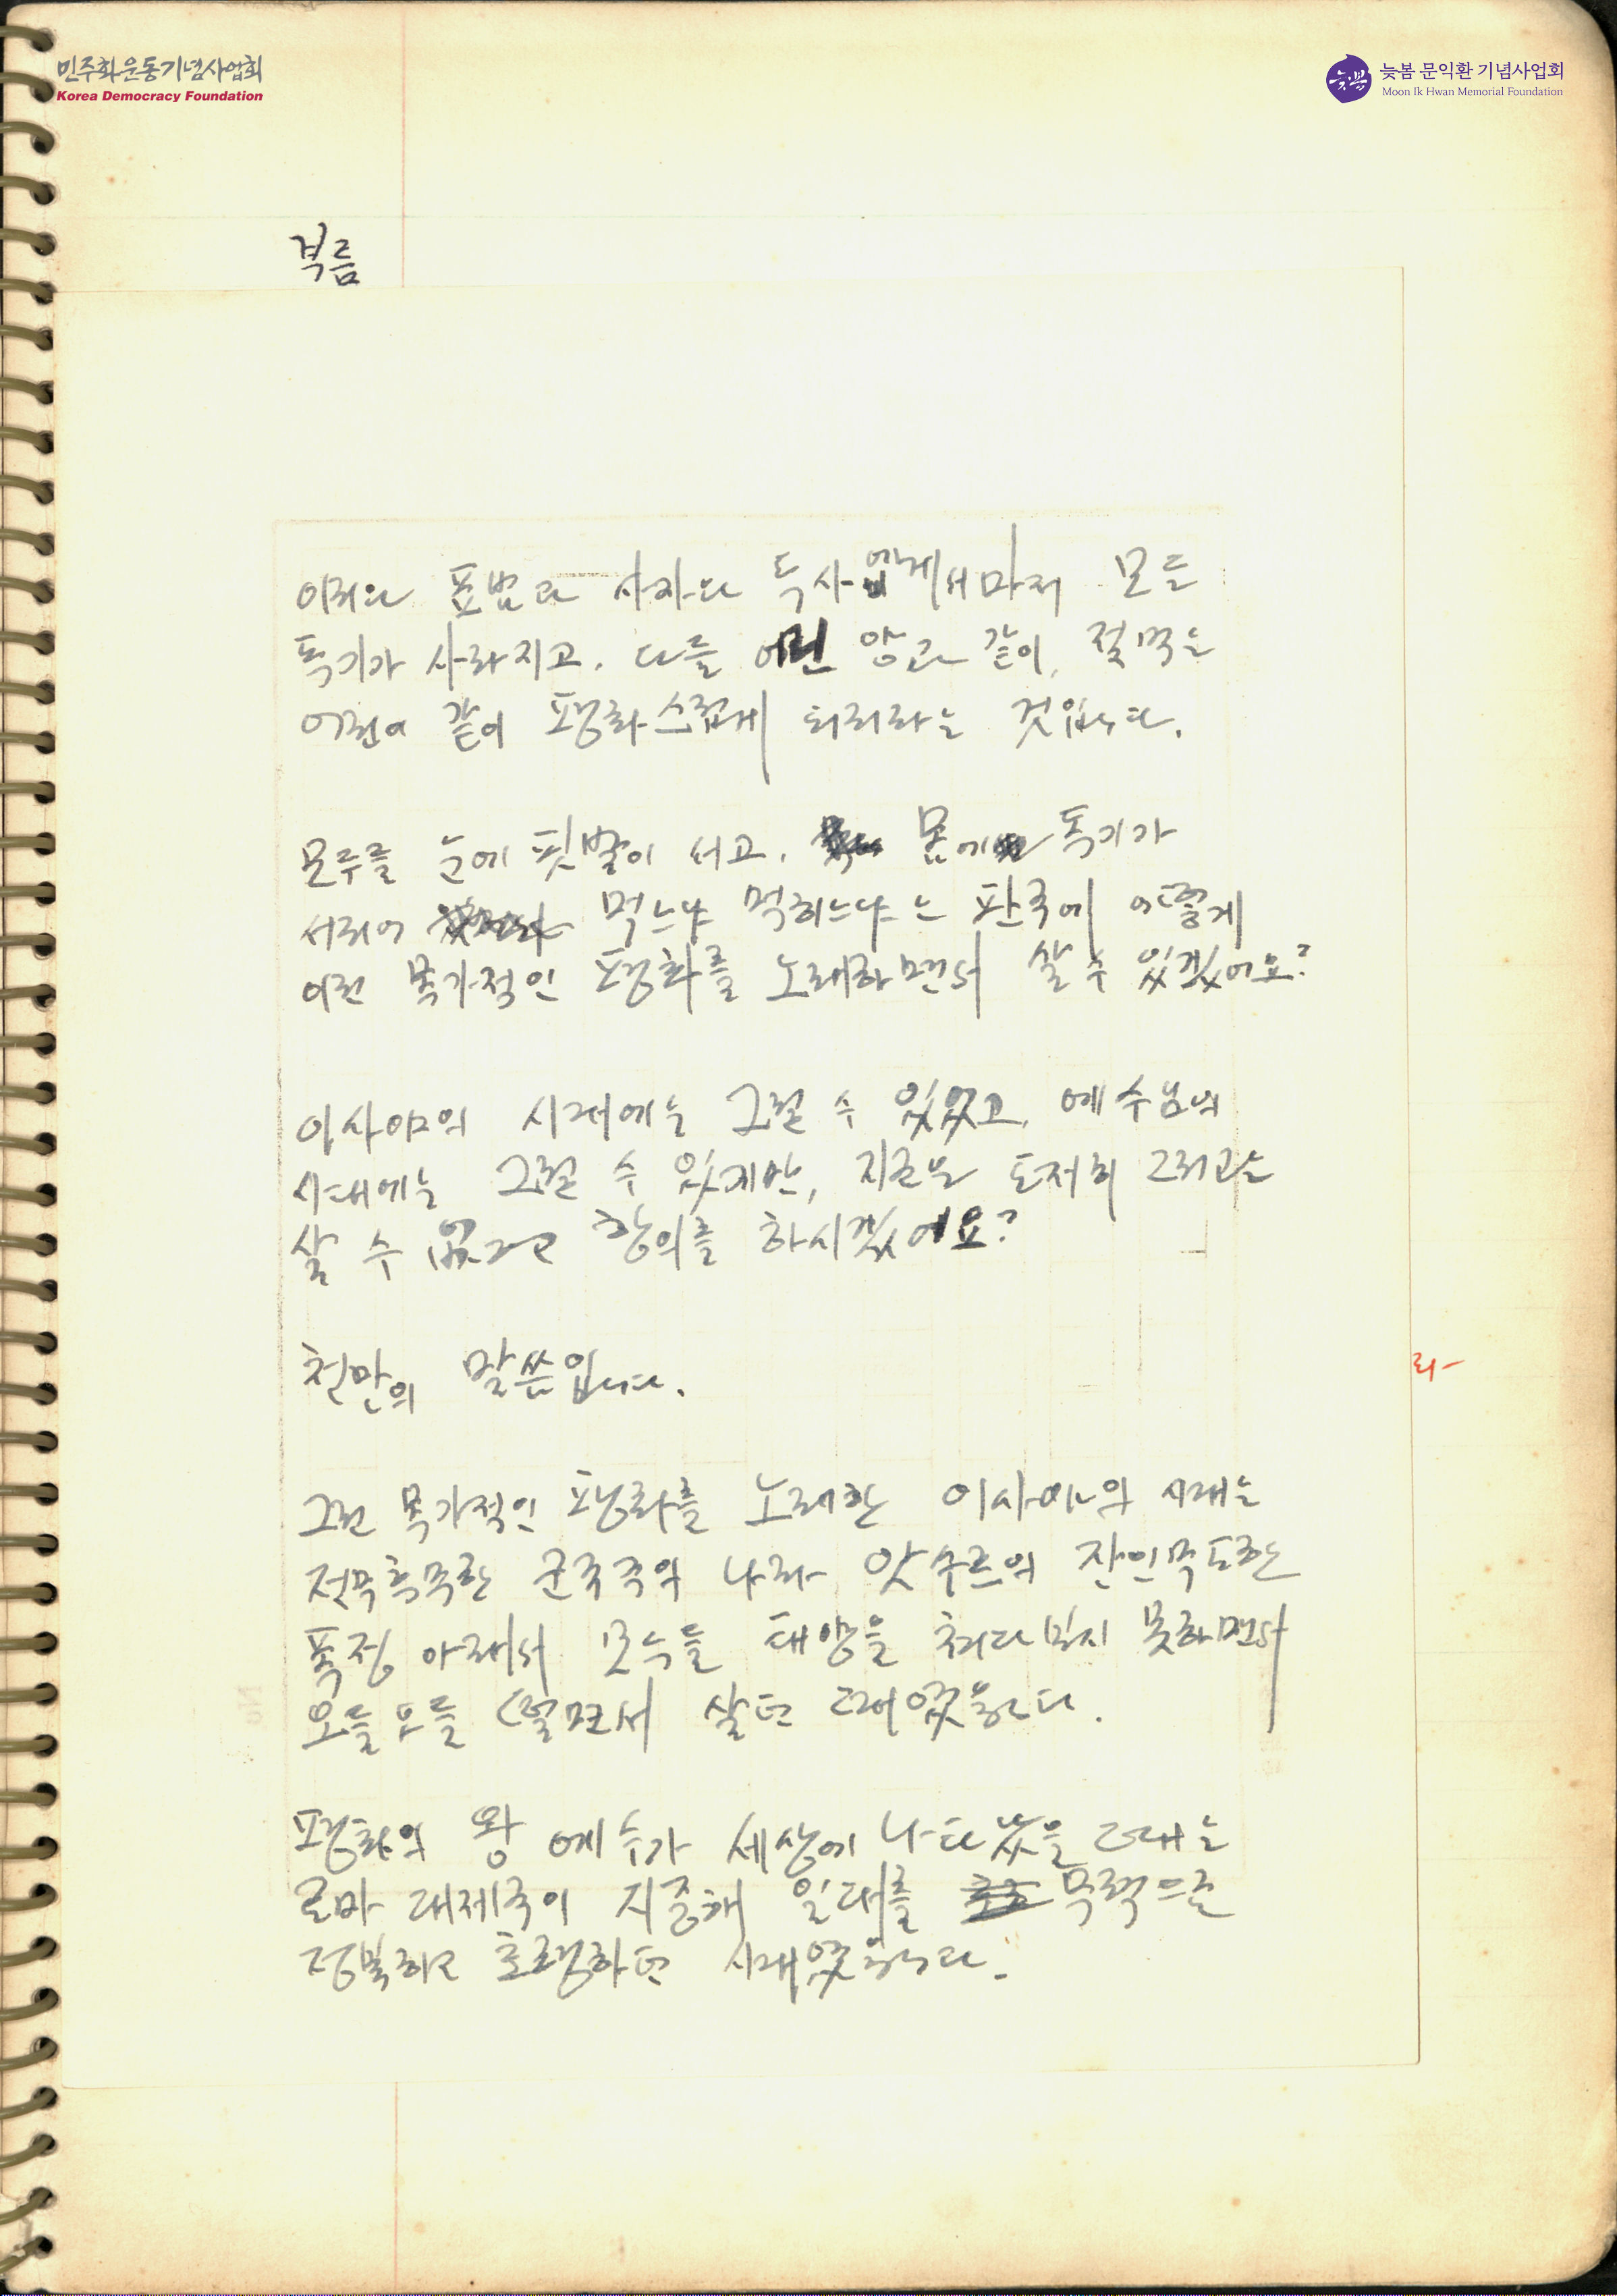 민주화운동기념사업회
Korea Democracy Foundation
늦봄
늦봄 문익환 기념사업회
Moon Ik Hwan Memorial Foundation
부름
이리와 표범과 사자와 독사에게서마저 모든
독기가 사라지고, 다들 어린 양과 같이, 젖먹는
어린이 같이 평화스럽게 되리라는 것입니다.
모두들 눈에 핏발이 서고, 몸에 독기가
서리어 먹느냐 먹히느냐는 판국에 어떻게
이런 목가적인 평화를 노래하면서 살 수 있겠어요?
이사야의 시대에는 그럴 수 있었고, 예수님의
시대에는 그럴 수 있지만, 지금은 도저히 그러고는
살 수 없다고 항의를 하시겠어요?
천만의 말씀입니다.
그런 목가적인 평화를 노래한 이사야의 시대는
전무후무한 군국주의 나라 앗수르의 잔인무도한
폭정 아래서 모두들 태양을 쳐다보지 못하면서
오들오들 떨면서 살던 때였습니다.
평화의 왕 예수가 세상에 나타났을 때는
로마 대제국이 지중해 일대를 무력으로
정복하고 호령하던 시대였습니다.